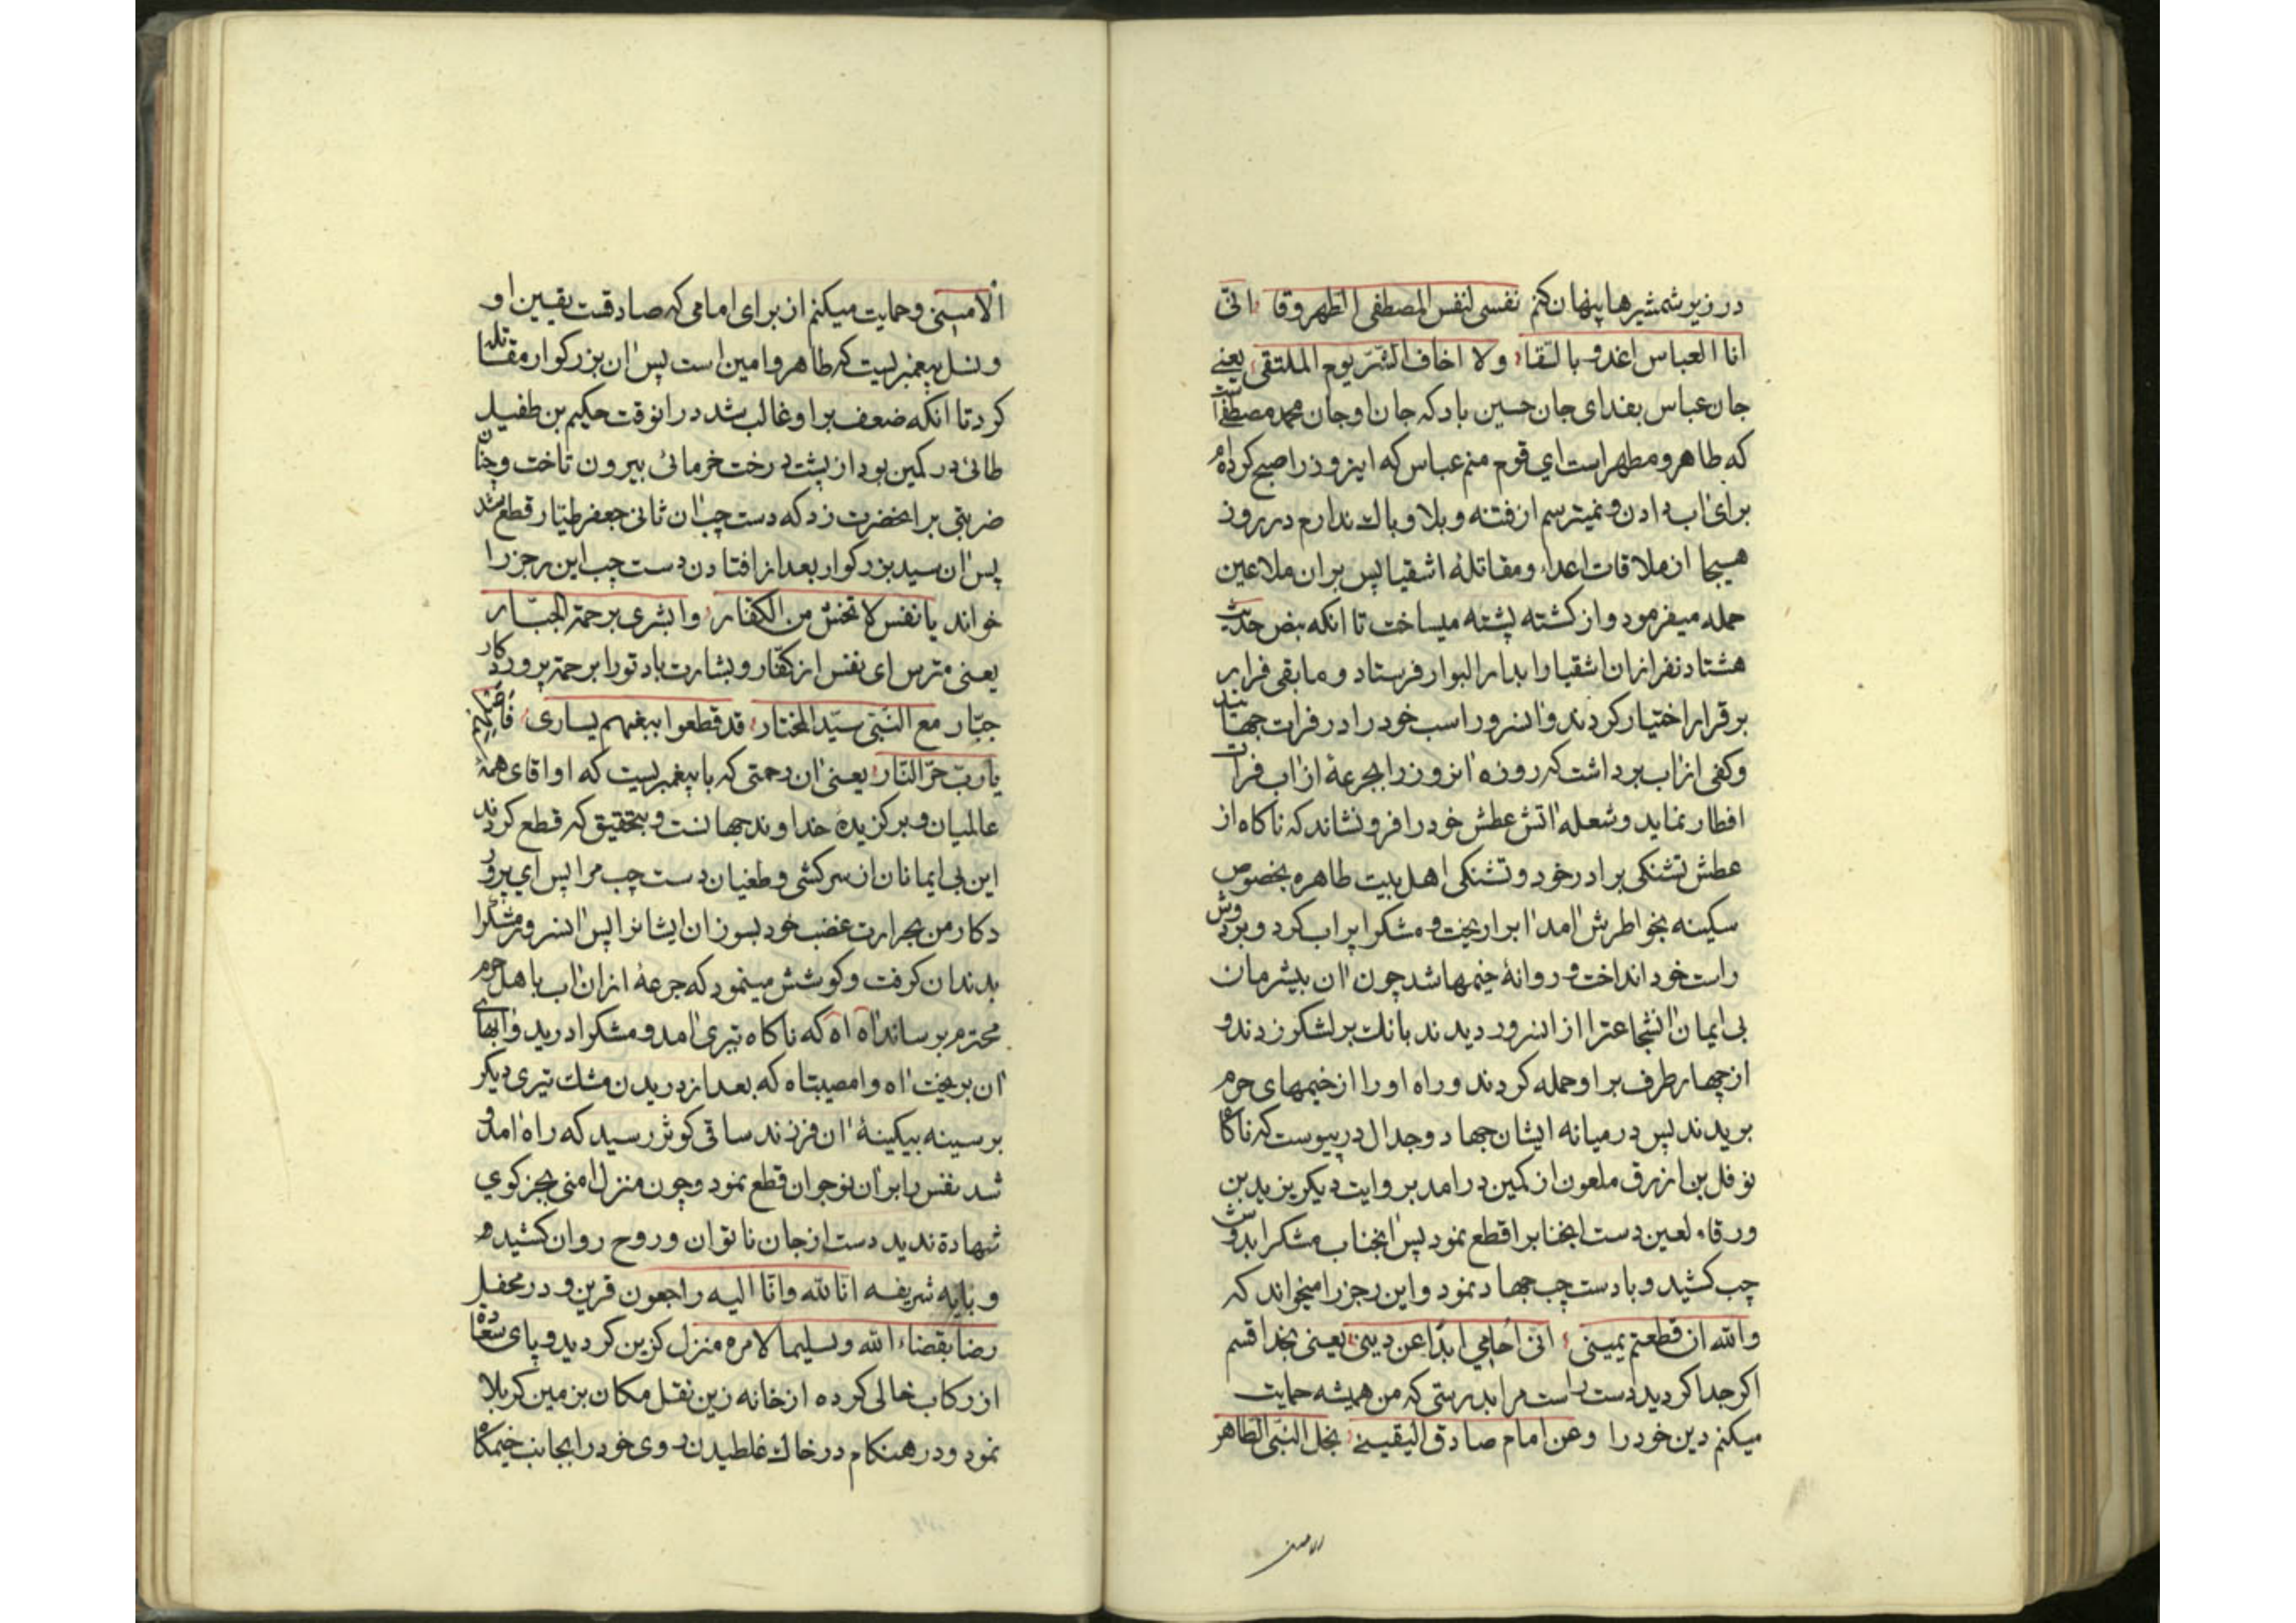 در زیر شمشیرها پنهان کنم نفسی لنفس المصطفی الطهر وقا انی
انا العباس اغدو بالسّقا ولا اخاف الشّرّ یوم الملتقی یعنی
جان عباس بفدای جان حسین باد که جان او جان محمد مصطفی است
که طاهر و مطهر است ای قوم منم عباس که اینروز را صبح کرده‌ام
برای آب دادن و نمیترسم از فتنه و بلا و باک ندارم در روز
هیجا از ملاقات اعداء و مقاتلهٔ اشقیا پس بران ملاعین
حمله میفرمود و از کشته پشته میساخت تا انکه بنص حدیث
هشتاد نفر از ان اشقیا را بدار البوار فرستاد و ما بقی فرار
بر قرار اختیار کردند و آنسرور اسب خود را در فرات جهانید
و کفی از آب برداشت که روزه آنروز را بجرعهٔ از آب فرات
افطار نماید و شعله آتش عطش خود را فرو نشاند که ناکاه از
عطش تشنکی برادر خود و تشنکی اهل بیت طاهره بخصوص
سکینه بخواطرش آمد آبرا ریخت و مشکرا پر آب کرد و بردوش
راست خود انداخت و روانهٔ خیمها شد چون آن بیشرمان
بی ایمان آنشجاعترا از انسرور دیدند بانک بر لشکر زدند و
از چهار طرف بر او حمله کردند و راه او را از خیمهای حرم
بریدند پس در میانه ایشان جهاد و جدال در پیوست که ناکاه
نوفل بن ازرق ملعون از کمین در امد بروایت دیکر یزید بن
ورقاء لعین دست انجنابرا قطع نمود پس آنجناب مشکرا بدوش
چب کشید و با دست چب جهاد نمود و این رجز را میخواند که
والله ان قطعتم یمینی انّی احامی ابدًا عن دینی یعنی بخدا قسم
اکر جدا کردید دست راست مرا بدرستی که من همیشه حمایت
میکنم دین خود را وعن امام صادق الیقینے نجل النّبی الطاهر
الامین
الامینی و حمایت میکنم از برای امامی که صادقست یقین او
و نسل پیغمبریست که طاهر و امین است پس آن بزرکوار مقاتله
کرد تا انکه ضعف بر او غالب شد در انوقت حکیم بن طفیل
طائی در کمین بود از پشت درخت خرمائی بیرون تاخت و چنان
ضربتی بر انحضرت زد که دست چب آن ثانی جعفر طیّار قطع شد
پس آن سید بزرکوار بعد از افتادن دست چب این رجز را
خواند یا نفس لا تخش من الکفّار وابشری برحمة الجبّار
یعنی مترس ای نفس از کفّار و بشارت باد تو را برحمة پروردکار
جبّار مع النّبی سیّد المختار قد قطعوا ببغیهم یساری فاصلهم
یا ربّ حرّ النّار یعنی آن رحمتی که با پیغمبریست که او اقای همهٔ
عالمیان و برکزیدهٔ خداوند جهانست و بتحقیق که قطع کردند
این بی ایمانان از سرکشی و طغیان دست چب مرا پس ای پرور
دکار من بحرارت غضب خود بسوزان ایشانرا پس آنسرور مشکرا
بدندان کرفت و کوشش مینمود که جرعهٔ از ان آب باهل حرم
محترم برساند آه آه که ناکاه تیری آمد و مشکرا درید و آبهای
آن بریخت آه وا مصیبتاه که بعد از دریدن مشک تیری دیکر
بر سینه بیکینهٔ آن فرزند ساقی کوثر رسید که راه آمد و
شد نفس را بر آن نوجوان قطع نمود و چون منزل امنی بجز کوی
شهادة ندید دست از جان ناتوان و روح روان کشیده
و بایه شریفه انّا لله وانّا الیه راجعون قرین و در محفل
رضا بقضاء الله وتسلیما لامره منزل کزین کردید و پای سعادة
از رکاب خالی کرده از خانه زین نقل مکان بزمین کربلا
نمود و در هنکام در خاک غلطیدن روی خود را بجانب خیمکاه